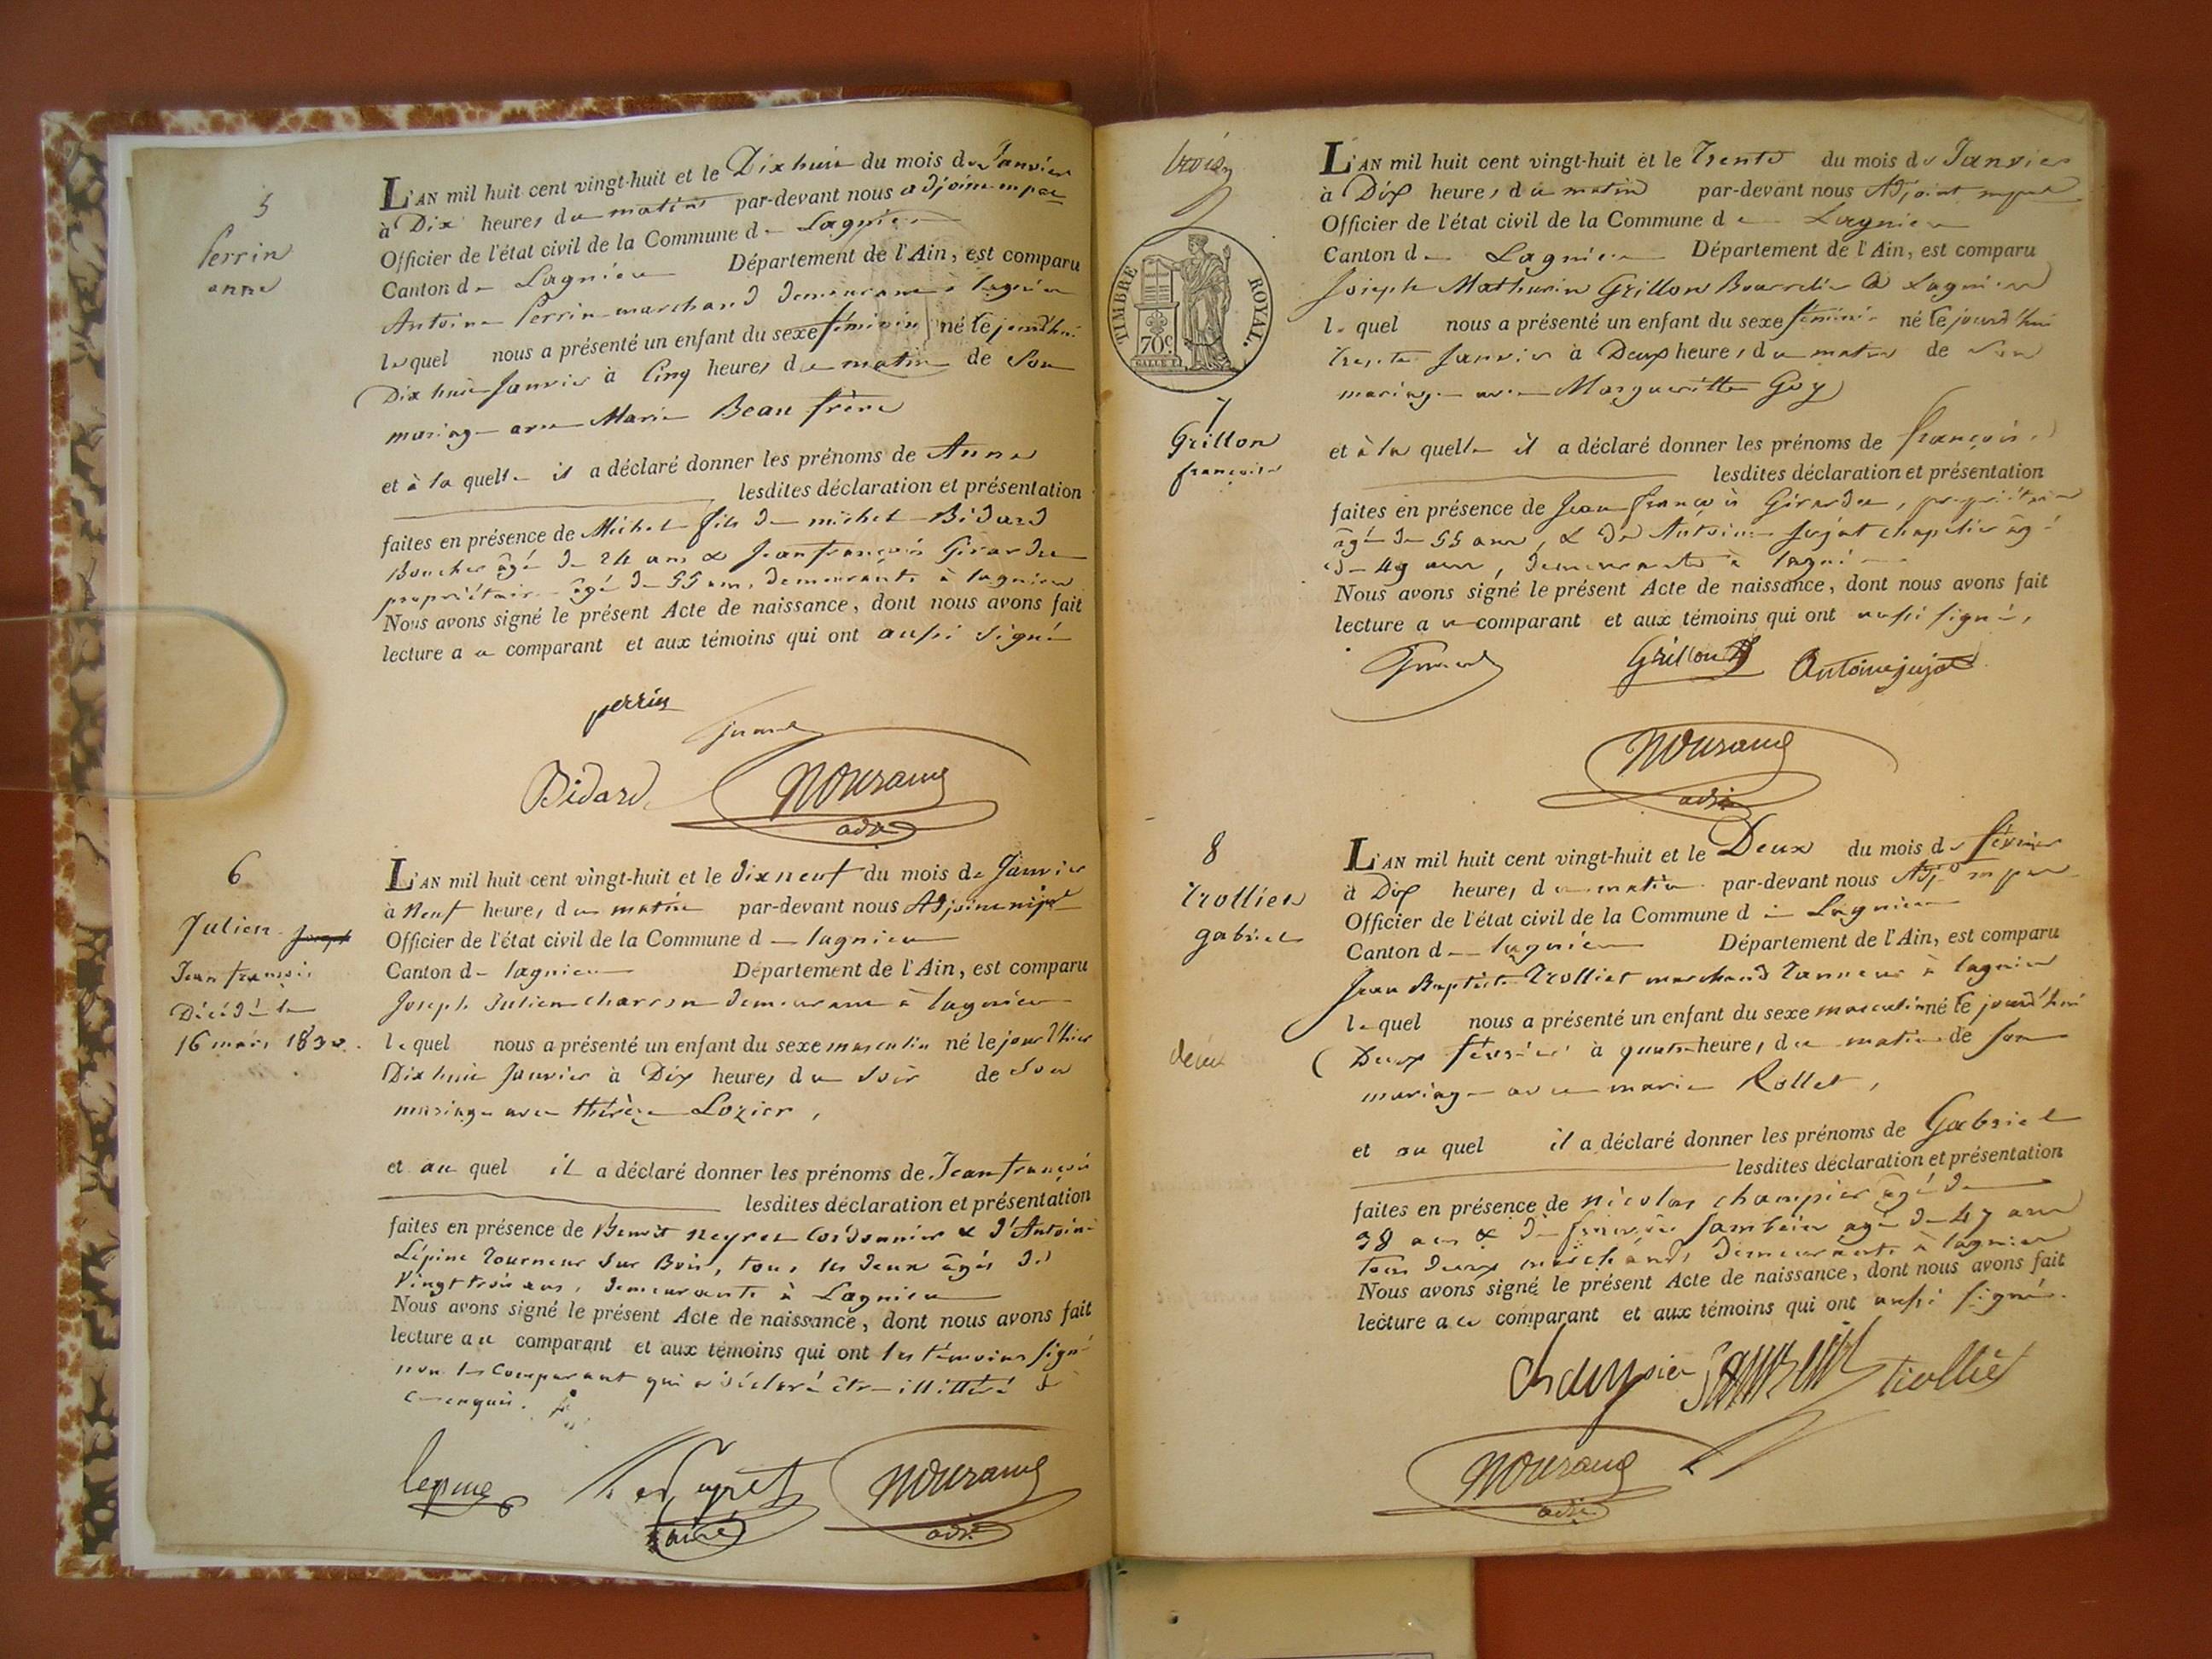 5
Perrin
anne
L'AN mil huit cent vingt-huit et le Dix huit du mois de Janvier
à Dix heures du matin par-devant nous adjoint mpal
Officier de l'état civil de la Commune de Lagnieu
Canton de Lagnieu Département de l'Ain, est comparu
Antoine Perrin marchand demeurant à lagnieu
lequel nous a présenté un enfant du sexe féminin né le jourd'hui
Dix huit Janvier à Cinq heures du matin de son
mariage avec Marie Beau frère
et à la quelle il a déclaré donner les prénoms de Anne
lesdites déclaration et présentation
faites en présence de Michel fils de michel Bidard
Boucher âgé de 24 ans & Jean françois Girardu
propriétaire âgé de 55 ans, demeurants à lagnieu
Nous avons signé le présent Acte de naissance, dont nous avons fait
lecture au comparant et aux témoins qui ont aussi signé
perrin
Bidard
adj.
6
Julien Joseph
Jean françois
Décédé le
16 mars
L'AN mil huit cent vingt-huit et le dix neuf du mois de Janvier
à Neuf heures du matin par-devant nous Adjoint mpal
Officier de l'état civil de la Commune de lagnieu
Canton de lagnieu Département de l'Ain, est comparu
Joseph Julien charron demeurant à lagnieu
lequel nous a présenté un enfant du sexe masculin né le jour d'hier
Dix huit Janvier à Dix heures du soir de son
mariage avec thérèze Lozier,
et au quel il a déclaré donner les prénoms de Jean françois
lesdites déclaration et présentation
faites en présence de Benoit neyret Cordonnier & d'Antoine
Lépine tourneur sur Bois, tous les deux âgés de
Vingt trois ans, demeurants à Lagnieu
Nous avons signé le présent Acte de naissance, dont nous avons fait
lecture au comparant et aux témoins qui ont les témoins signé
non le comparant qui a déclaré être illittéré de
ce enquis.
lepine
adj.
trois
TIMBRE ROYAL.
70c
7
Grillon
françoise
L'AN mil huit cent vingt-huit et le trente du mois de Janvier
à Dix heures du matin par-devant nous Adjoint mpal
Officier de l'état civil de la Commune de Lagnieu
Canton de Lagnieu Département de l'Ain, est comparu
Joseph Mathurin Grillon Bourrelier à Lagnieu
lequel nous a présenté un enfant du sexe féminin né le jourd'hui
trente Janvier à Deux heures du matin de son
mariage avec Margueritte Goy
et à la quelle il a déclaré donner les prénoms de françoise
lesdites déclaration et présentation
faites en présence de Jean françois Girardu, propriétaire
âgé de 55 ans, & de Antoine Jujat chapelier âgé
de 49 ans, demeurants à lagnieu
Nous avons signé le présent Acte de naissance, dont nous avons fait
lecture au comparant et aux témoins qui ont aussi signé,
Grillon
Antoine jujat
adj.
8
trolliet
gabriel
deux
L'AN mil huit cent vingt-huit et le Deux du mois de février
à Dix heures du matin par-devant nous Adjt mpal
Officier de l'état civil de la Commune de Lagnieu
Canton de lagnieu Département de l'Ain, est comparu
Jean Baptiste trolliet marchand tanneur à lagnieu
lequel nous a présenté un enfant du sexe masculin né le jourd'hui
Deux février à quatre heures du matin de son
mariage avec marie Rollet,
et au quel il a déclaré donner les prénoms de Gabriel
lesdites déclaration et présentation
faites en présence de nicolas champier âgé de
38 ans & de sambein agé de 47 ans
tous deux marchands demeurants à lagnieu
Nous avons signé le présent Acte de naissance, dont nous avons fait
lecture au comparant et aux témoins qui ont aussi signé.
Champier trolliet
adj.